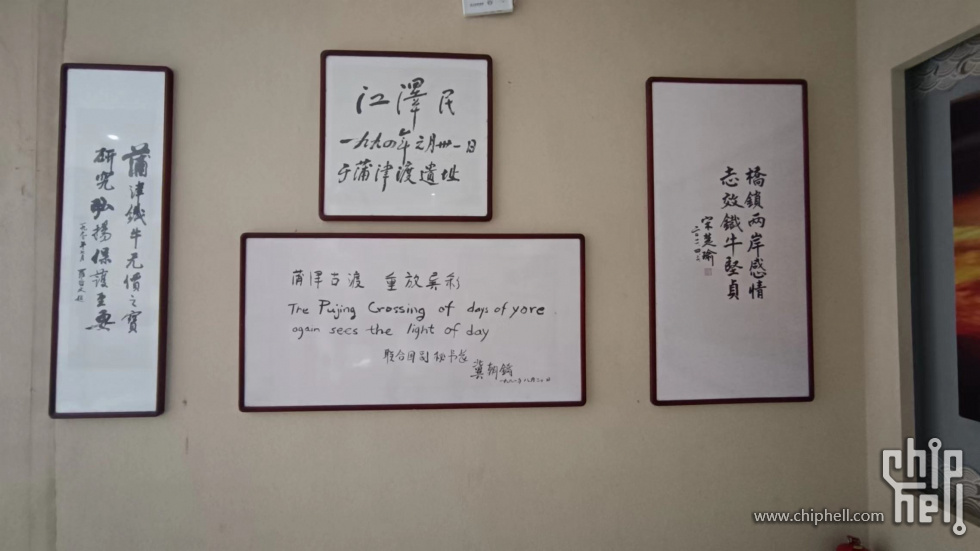 蒲津鐵牛无價之寶
研究弘揚保護至要
江澤民
一九九四年元月卅一日
于蒲津渡遺址
蒲津古渡 重放異彩
The Pujing Crossing of days of yore
again sees the light of day
联合国副秘书长
冀朝鑄
橋鎖兩岸感情
志效鐵牛堅貞
宋楚瑜
chip
hell
www.chiphell.com